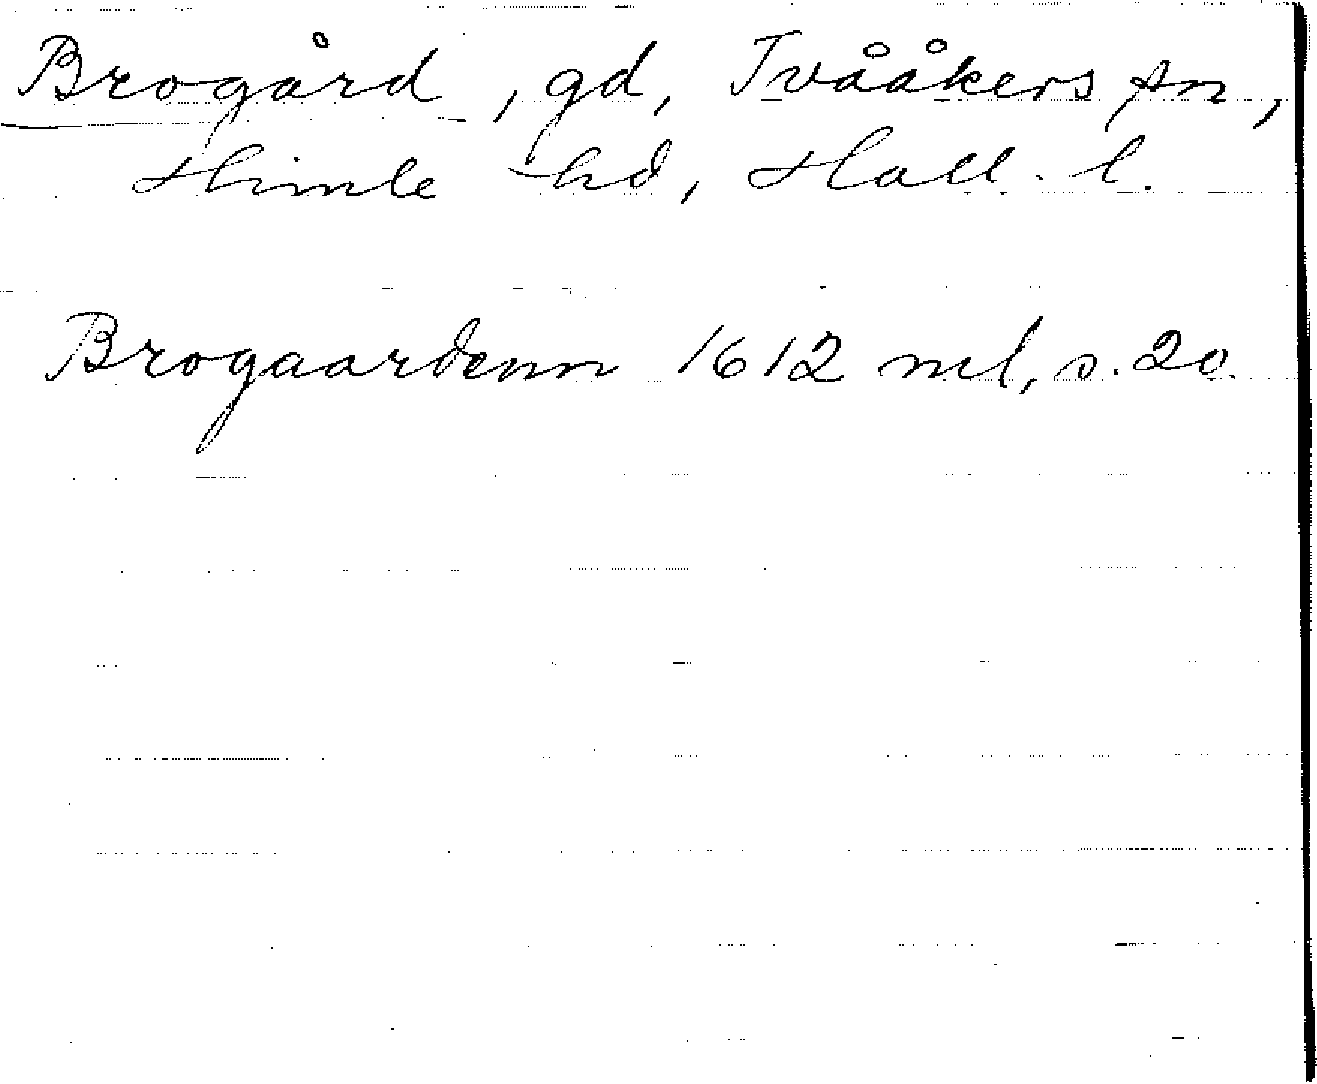 Brogård, gd, Tvååkers sn,
Himle hd, Hall. l.
Brogaardenn 1612 ml, s. 20